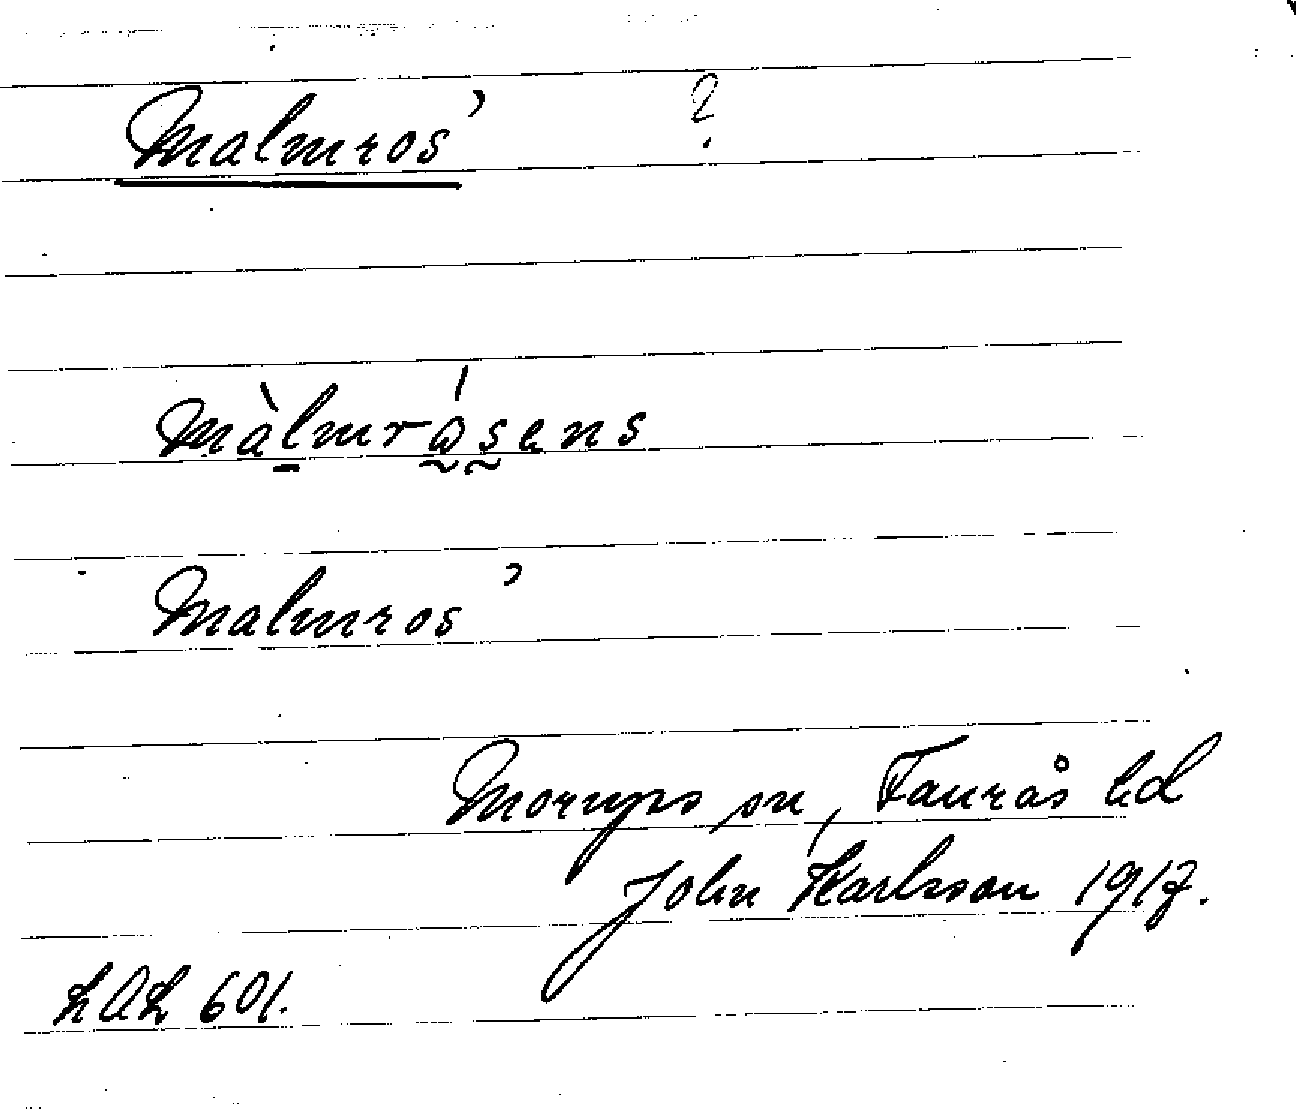 Malmros' ?
màlmrósens
Malmros'
Morups sn, Faurås hd
John Karlsson 1917.
LAL 601.